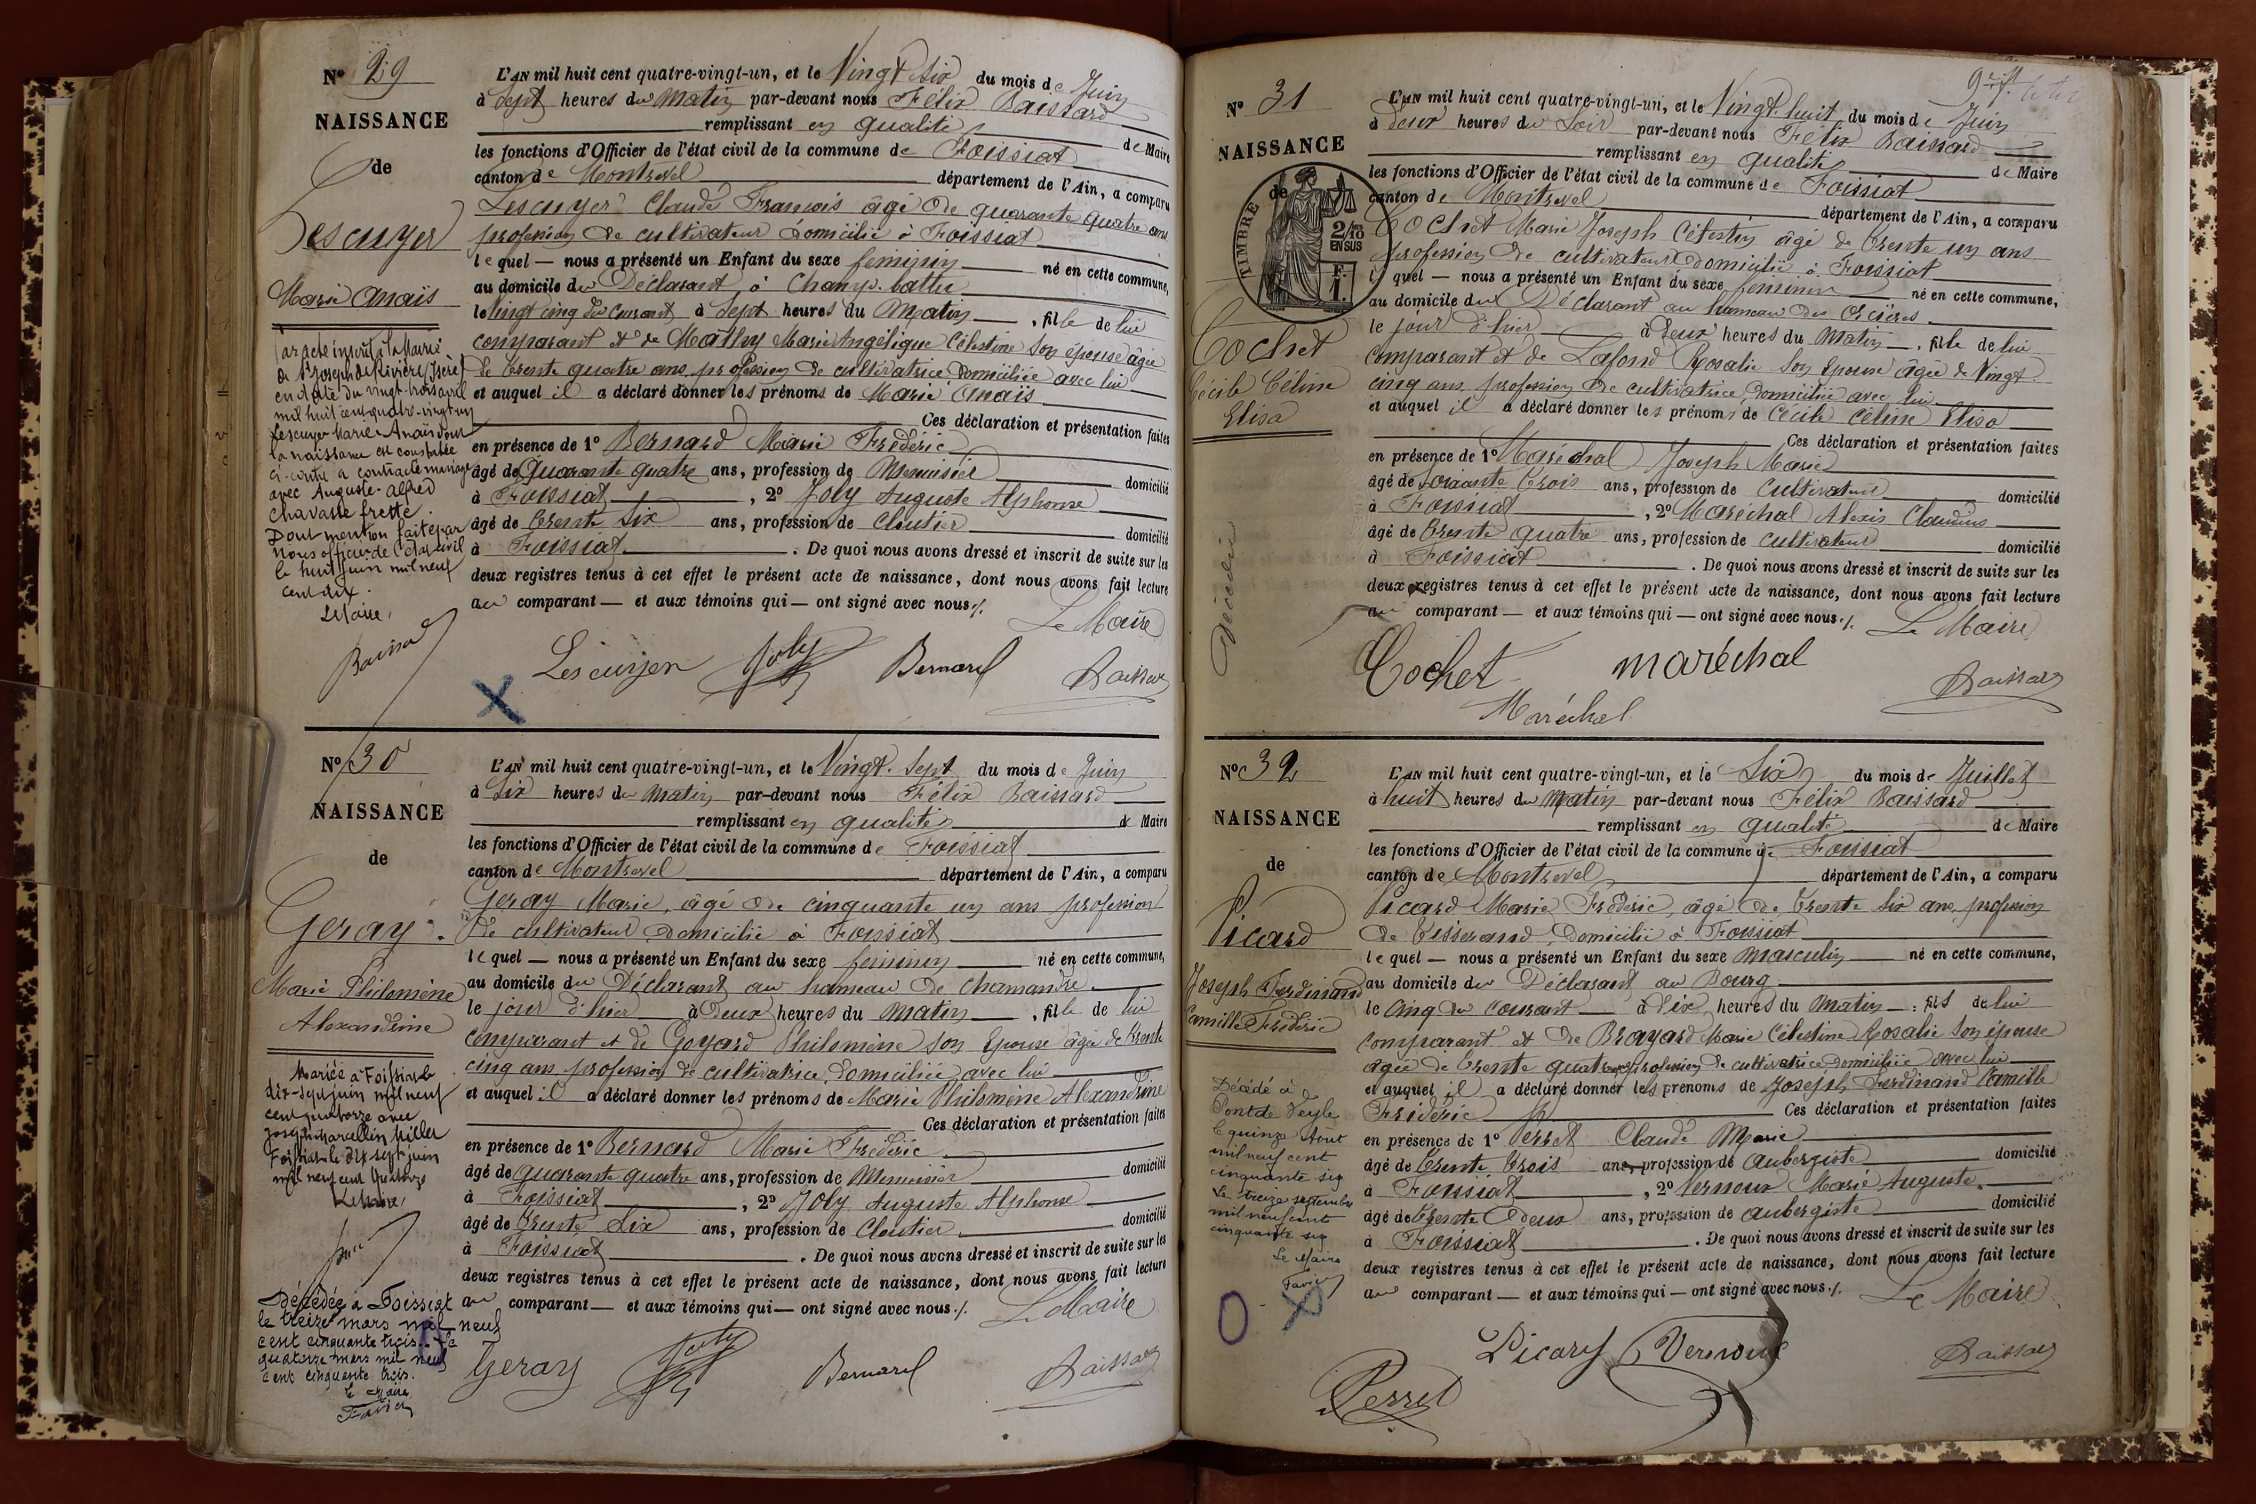 Nº 29
NAISSANCE
de
Lescuyer
Marie Anaïs
Par acte inscrit à la Mairie
de St Joseph de Rivière (Isère)
en date du vingt-trois avril
mil huit cent quatre-vingt-un
Lescuyer Marie-Anaïs dont
la naissance est constatée
ci-contre a contracté mariage
avec Auguste-Alfred
Chavasse frette.
Dont mention faite par
nous officier de l'état civil
le huit juin mil neuf
cent dix.
Le Maire,
L'AN mil huit cent quatre-vingt-un, et le Vingt Six du mois de Juin
à Sept heures du Matin par-devant nous Félix Baissard
remplissant en qualité de Maire
les fonctions d'Officier de l'état civil de la commune de Foissiat
canton de Montrevel département de l'Ain, a comparu
Lescuyer Claude François âgé de quarante quatre ans
profession de cultivateur domicilié à Foissiat
lequel — nous a présenté un Enfant du sexe féminin né en cette commune,
au domicile du Déclarant à Champ-battu
le Vingt cinq du Courant à Sept heures du Matin, fille de lui
comparant et de Mathy Marie Angélique Célestine son épouse âgée
de Trente quatre ans, profession de cultivatrice domiciliée avec lui
et auquel il a déclaré donner les prénoms de Marie Anaïs
Ces déclaration et présentation faites
en présence de 1º Bernard Marie Frédéric
âgé de Quarante quatre ans, profession de Menuisier domicilié
à Foissiat, 2º Joly Auguste Alphonse
âgé de Trente Six ans, profession de Cloutier domicilié
à Foissiat. De quoi nous avons dressé et inscrit de suite sur les
deux registres tenus à cet effet le présent acte de naissance, dont nous avons fait lecture
au comparant — et aux témoins qui — ont signé avec nous ./.
Le Maire
Lescuyer Joly Bernard Baissard
Nº 30
NAISSANCE
de
Geray
Marie Philomène
Alexandrine
Mariée à Foissiat le
dix-sept juin mil neuf
cent quatorze avec
Joseph Marcellin Millet
Foissiat le dix sept juin
mil neuf cent quatorze
Le Maire,
Décédée à Foissiat
le treize mars mil neuf
cent cinquante trois. Le
quatorze mars mil neuf
cent cinquante trois.
le Maire
Favier
L'AN mil huit cent quatre-vingt-un, et le Vingt. Sept du mois de Juin
à Six heures du Matin par-devant nous Félix Baissard
remplissant en qualité de Maire
les fonctions d'Officier de l'état civil de la commune de Foissiat
canton de Montrevel département de l'Ain, a comparu
Geray Marie, âgé de cinquante un ans profession
de cultivateur domicilié à Foissiat
lequel — nous a présenté un Enfant du sexe féminin né en cette commune,
au domicile du Déclarant au hameau de Chamandre
le jour d'hier à Deux heures du Matin, fille de lui
comparant et de Goyard Philomène son Epouse âgée de Trente
cinq ans profession de cultivatrice, domiciliée avec lui
et auquel il a déclaré donner les prénoms de Marie Philomène Alexandrine
Ces déclaration et présentation faites
en présence de 1º Bernard Marie Frédéric
âgé de quarante quatre ans, profession de Menuisier domicilié
à Foissiat, 2º Joly Auguste Alphonse
âgé de Trente Six ans, profession de Cloutier domicilié
à Foissiat. De quoi nous avons dressé et inscrit de suite sur les
deux registres tenus à cet effet le présent acte de naissance, dont nous avons fait lecture
au comparant — et aux témoins qui — ont signé avec nous ./.
Le Maire
Geray Joly Bernard Baissard
Nº 31
NAISSANCE
de
TIMBRE
2/10
EN SUS
F.
1.
Cochet
Cécile Céline
Elisa
Décédée
L'AN mil huit cent quatre-vingt-un, et le Vingt. huit du mois de Juin
à Deux heures du Soir par-devant nous Félix Baissard
remplissant en qualité de Maire
les fonctions d'Officier de l'état civil de la commune de Foissiat
canton de Montrevel département de l'Ain, a comparu
Cochet Marie Joseph Célestin âgé de Trente un ans
profession de cultivateur domicilié à Foissiat
lequel — nous a présenté un Enfant du sexe féminin né en cette commune,
au domicile du Déclarant au hameau des
le jour d'hier à Deux heures du Matin, fille de lui
comparant et de Lafond Rosalie son Epouse âgée de Vingt.
cinq ans, profession de cultivatrice, domiciliée avec lui
et auquel il a déclaré donner les prénoms de Cécile Céline Elisa
Ces déclaration et présentation faites
en présence de 1º Maréchal Joseph Marie
âgé de soixante Trois ans, profession de Cultivateur domicilié
à Foissiat, 2º Maréchal Alexis Claudius
âgé de Trente quatre ans, profession de Cultivateur domicilié
à Foissiat. De quoi nous avons dressé et inscrit de suite sur les
deux registres tenus à cet effet le présent acte de naissance, dont nous avons fait lecture
au comparant — et aux témoins qui — ont signé avec nous ./.
Le Maire
Cochet maréchal Baissard
Maréchal
Nº 32
NAISSANCE
de
Picard
Joseph Ferdinand
Camille Frédéric
Décédé à
Pont de Veyle
le quinze Août
mil neuf cent
cinquante six
Le treize septembre
mil neuf cent
cinquante six
Le Maire
Favier
L'AN mil huit cent quatre-vingt-un, et le Six du mois de Juillet
à huit heures du Matin par-devant nous Félix Baissard
remplissant en qualité de Maire
les fonctions d'Officier de l'état civil de la commune de Foissiat
canton de Montrevel département de l'Ain, a comparu
Picard Marie Frédéric, âgé de Trente Six ans, profession
de Tisserand domicilié à Foissiat
lequel — nous a présenté un Enfant du sexe Masculin né en cette commune,
au domicile du Déclarant au Bourg
le Cinq du courant à Six heures du Matin, fils de lui
comparant et de Brayard Marie Célestine Rosalie son épouse
âgée de Trente quatre ans profession de cultivatrice domiciliée avec lui
et auquel il a déclaré donner les prénoms de Joseph Ferdinand Camille
Frédéric Ces déclaration et présentation faites
en présence de 1º Perret Claude Marie
âgé de Trente Trois ans, profession de Aubergiste domicilié
à Foissiat, 2º Vernoux Marie Auguste
âgé de Trente Deux ans, profession de aubergiste domicilié
à Foissiat. De quoi nous avons dressé et inscrit de suite sur les
deux registres tenus à cet effet le présent acte de naissance, dont nous avons fait lecture
au comparant — et aux témoins qui — ont signé avec nous ./.
Le Maire
Picard Vernoux Baissard
Perret